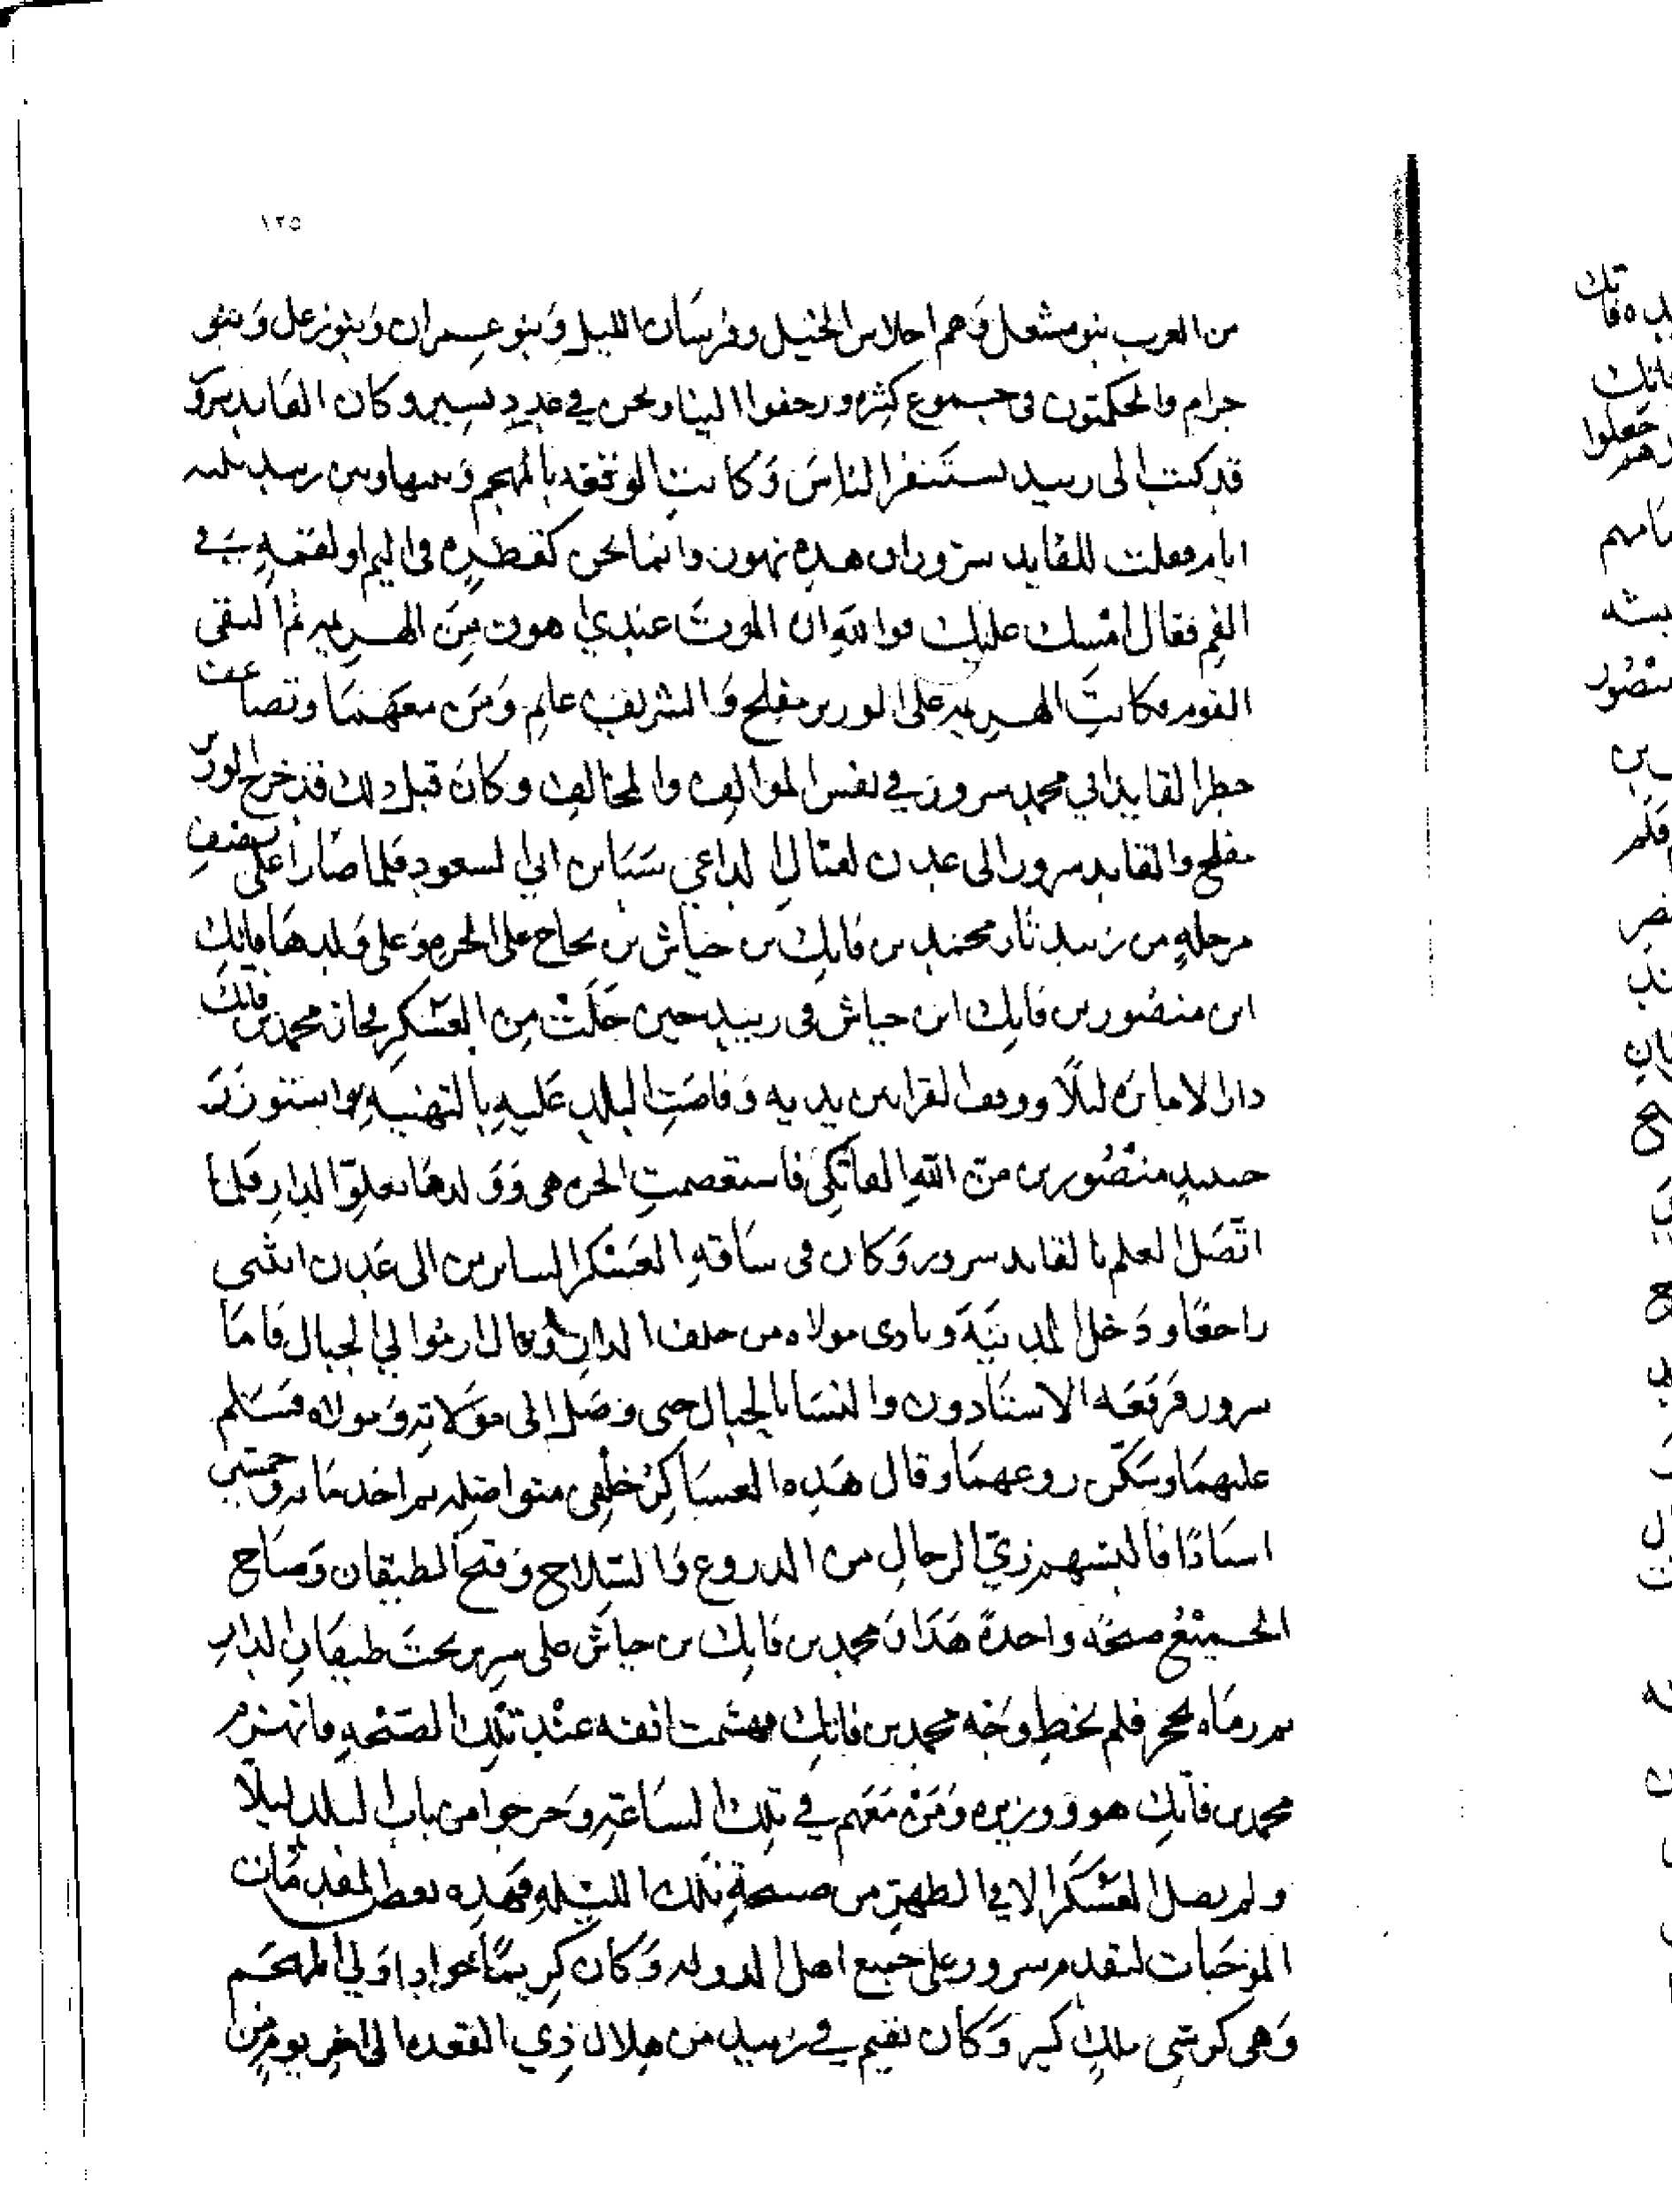 ١٢٥
من العرب بنو مشعل وهم احلاس الخيل وفرسان الليل وبنو عمران وبنو زعل وبنو
حرام والحكميون في جموع كثيره وزحفوا الينا ونحن في عدد يسير وكان القايد سرور
قد كتب الى زبيد يستنفر الناس وكانت الوقعه بالمهجم وبينها وبين زبيد ثلثه
ايام فقلت للقايد سرور ان هذه تهور وانما نحن كقطره في اليم او لقمه في
الفم فقال امسك عليك فوالله ان الموت عندي اهون من الهزيمه ثم التقى
القوم فكانت الهزيمه على الوزير مفلح والشريف غانم ومن معهما وتضاعف
خطر القايد ابي محمد سرور في نفس الموالف والمخالف وكان قبل ذلك قد خرج الوزير
مفلح والقايد سرور الى عدن لقتال الداعي سبا بن ابي السعود فلما صارا على نصف
مرحله من زبيد ثار محمد بن فاتك بن جياش بن نجاح على الحره وعلى ولدها فاتك
ابن منصور بن فاتك ابن جياش في زبيد حين خلت من العسكر فحاز محمد بن فاتك
دار الاماره ليلا ووقف القرا بين يديه وفاضت البلد عليه بالتهنيه واستوزر
حينيد منصور بن من الله الفاتكي فاستعصمت الحره هي وولدها بعلو الدار فلما
اتصل العلم بالقايد سرور وكان في ساقه العسكر السايرين الى عدن انثنى
راجعا ودخل المدينة ونادى مولاه من خلف الدار وقال ارموا لي الحبال فاما
سرور فرفعه الاستادون والنسا بالحبال حتى وصل الى مولاته ومولاه فسلم
عليهما وسكن روعهما وقال هذه العساكر خلفي متواصله ثم اخذ مايه وخمسين
استاذا فالبسهم زي الرجال من الدروع والسلاح وفتح الطيقان وصاح
الجميع صيحه واحدة هذا ومحمد بن فاتك بن جياش على سرير تحت طيقان الدار
ثم رماه بحجر فلم يخط وجه محمد بن فاتك فهشمت انفه عند تلك الصيحه فانهزم
محمد بن فاتك هو ووزيره ومن معهم في تلك الساعة وخرجوا من باب البلد ليلا
ولم يصل العسكر الا في الظهر من صبيحة تلك الليله فهذه بعض المقدمات
الموجبات لتقدم سرور على جميع اهل الدوله وكان كريما جوادا ولي المهجم
وهي كرسي ملك كبير وكان يقيم في زبيد من هلال ذي القعده الى اخر يوم من